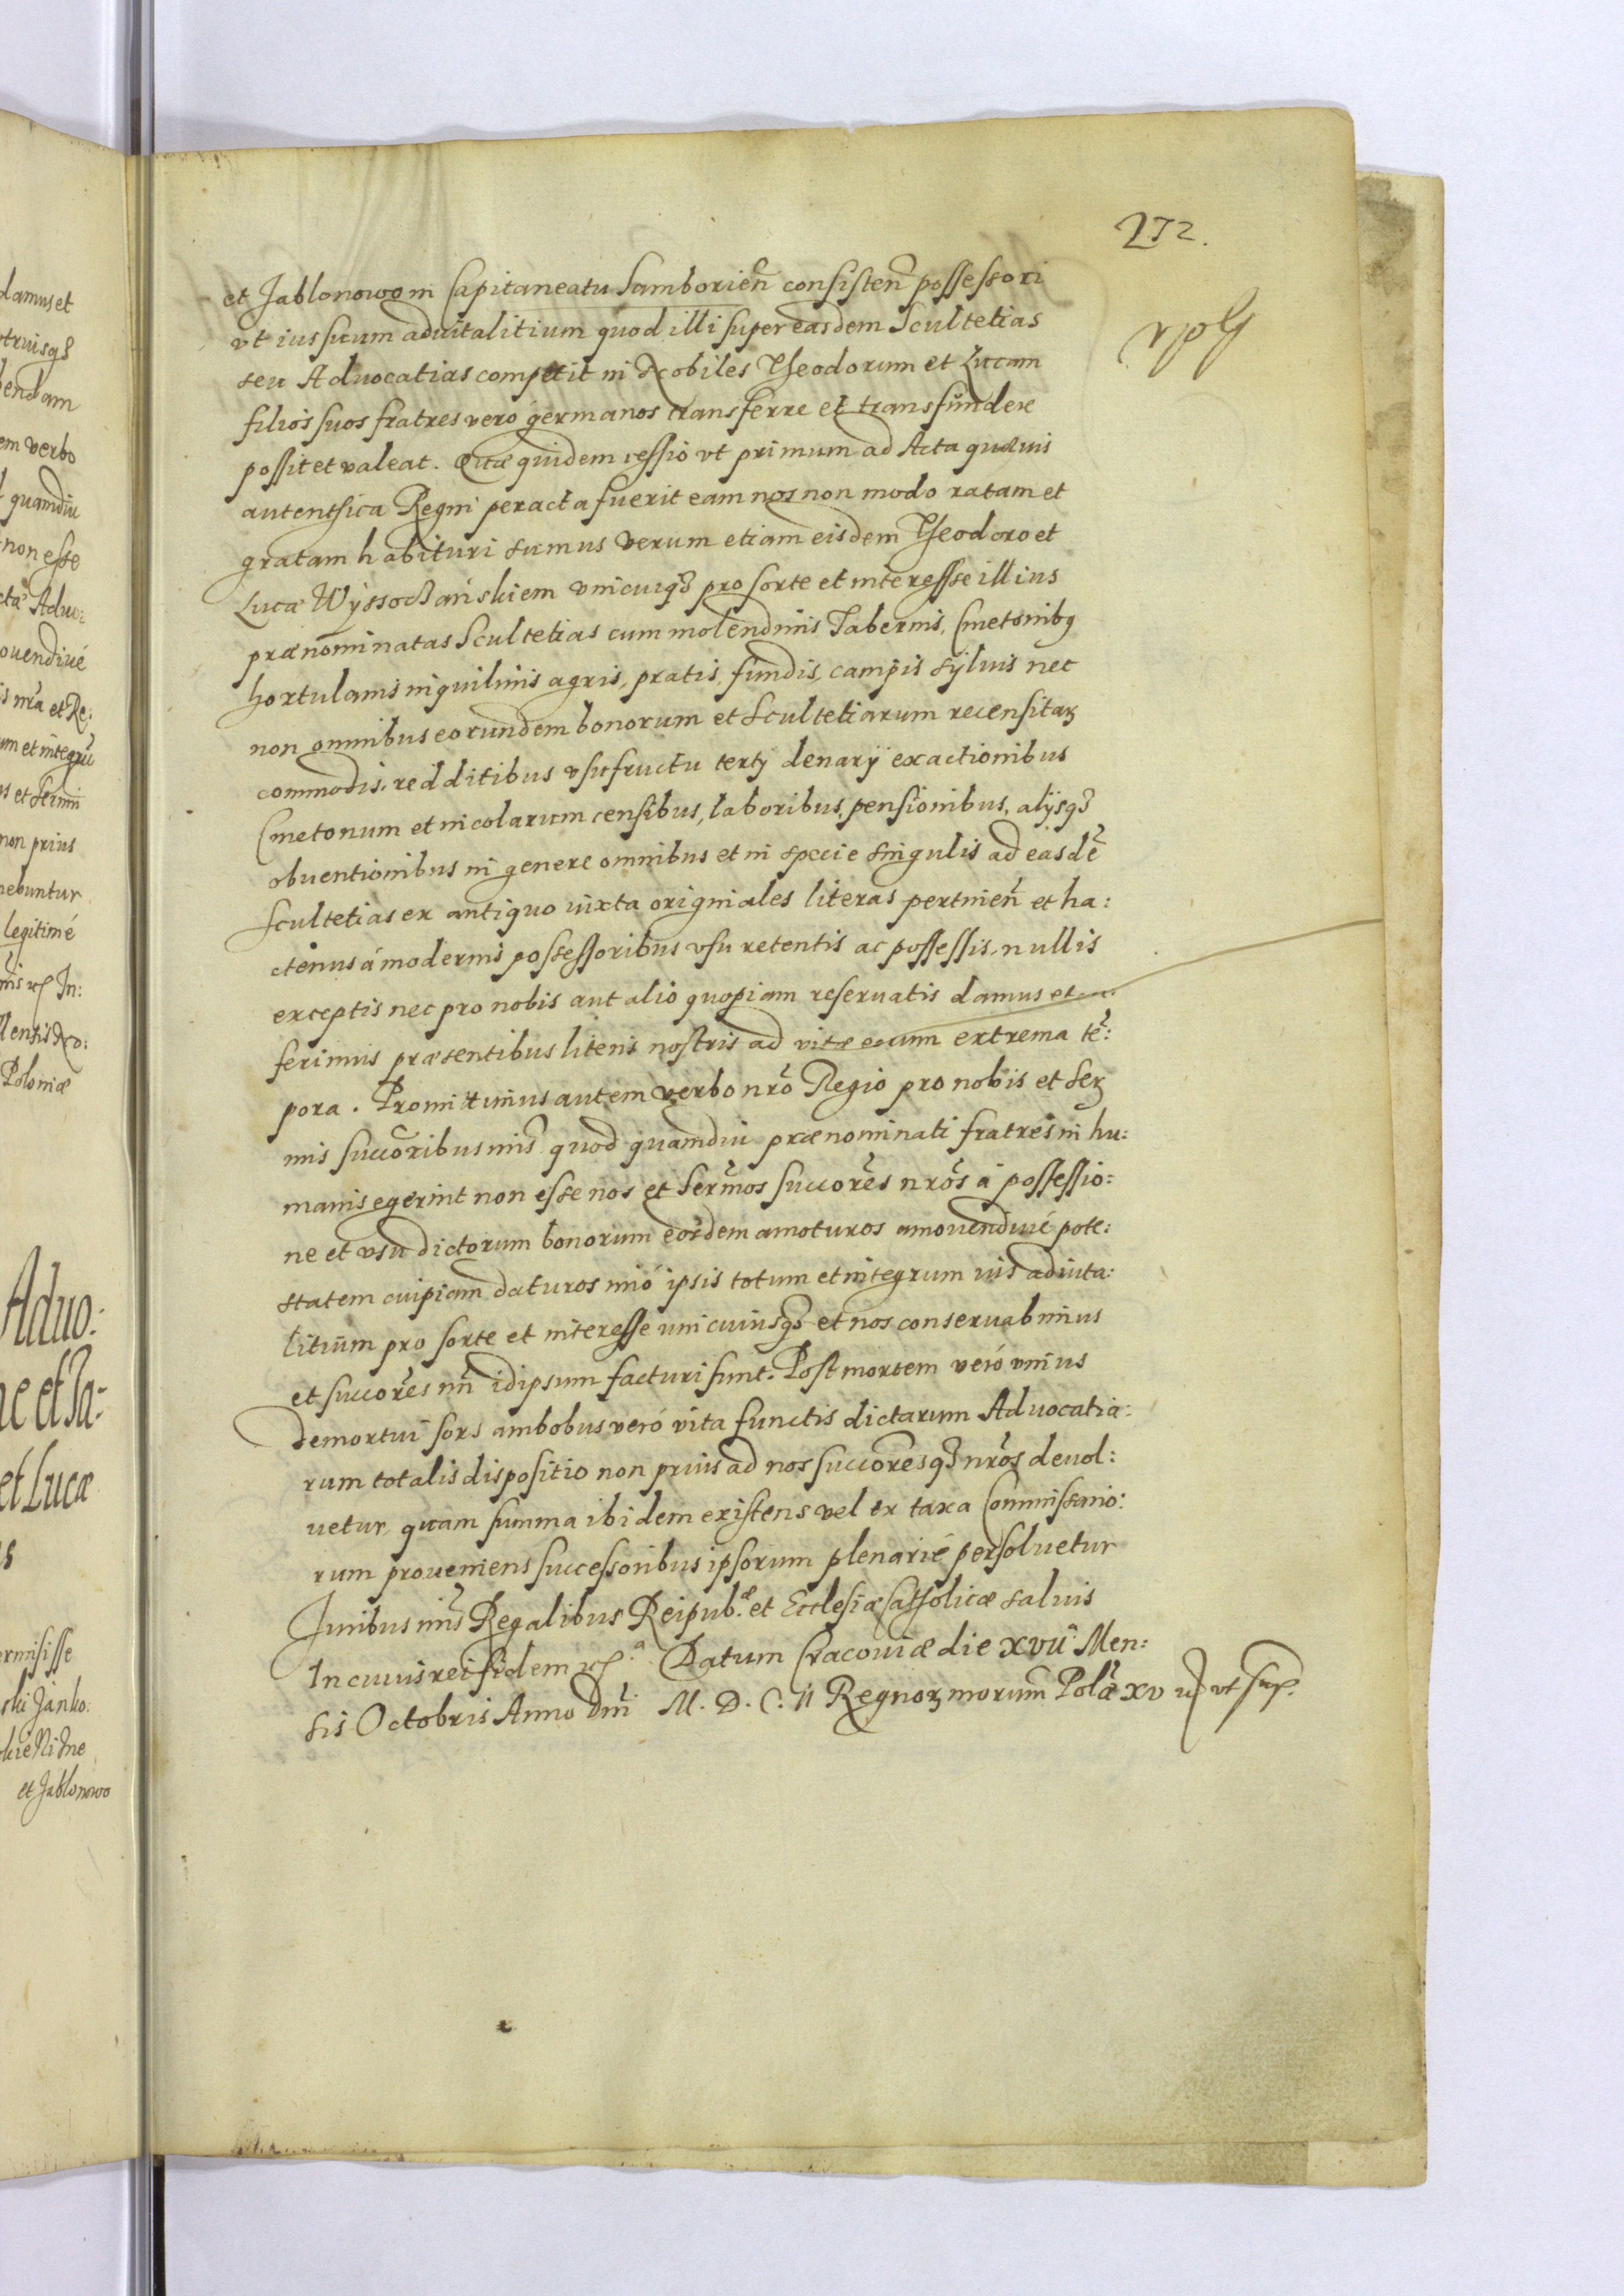 272.
et Jablonowo in Capitaneatu Samborieñ consisteñ possessori
vt ius suum aduitalitium quod illi super easdem Scultetias
seu Aduocatias competit in Nobiles Theodorum et Lucam
filios suos fratres vero germanos transferre et transfundere
possit et valeat. Quæ quidem cessio vt primum ad Acta quæuis
autenthica Regni peracta fuerit eam nos non modo ratam et
gratam habituri sumus verum etiam eisdem Theodoro et
Lucæ Wyssochańskiem vnicuiqȝ pro sorte et interesse illius
prænominatas Scultetias cum molendinis Tabernis, Cmetonibꝰ
hortulanis inquilinis agris, pratis, fundis, campis syluis nec
non omnibus eorundem bonorum et Scultetiarum recensitaꝝ
commodis, redditibus vsufructu tertÿ denarÿ exactionibus
Cmetonum et incolarum censibus, laboribus, pensionibus, alÿsqȝ
obuentionibus in genere omnibus et in specie singulis ad easdẽ
Scultetias ex antiquo iuxta originales literas pertineñ et ha:
ctenus á modernis possessoribus vsu retentis ac possessis, nullis
exceptis nec pro nobis aut alio quopiam reseruatis damus et con:
ferimus præsentibus literis nostris ad vitæ eorum extrema tẽ:
pora. Promittimus autem verbo nr̃o Regio pro nobis et Ser̃
mis succõribus nr̃is quod quamdiu prænominati fratres in hu:
manis egerint non esse nos et Ser̃mos succor̃es nr̃os á possessio:
ne et vsu dictorum bonorum eosdem amoturos amouendiué pote:
statem cuipiam daturos imó ipsis totum et integrum ius aduita:
litium pro sorte et interesse vnicuiusqȝ et nos conseruabimus
et succor̃es nr̃i idipsum facturi sunt. Post mortem veró vnius
demortui sors ambobus veró vita functis dictarum Aduocatia:
rum totalis dispositio non prius ad nos succor̃esqȝ nr̃os deuol:
uetur, quam summa ibidem existens vel ex taxa Commissario:
rum proueniens successoribus ipsorum plenarié persoluetur
Iuribus nr̃is Regalibus Reipub.æ et Ecclesiæ Catholicæ saluis
In cuius rei fidem Datum Cracouiæ die XVII Men:
sis Octobris Anno Dñi M. D. C. II Regnoꝝ nr̃orum Pol̃æ XV vt sup.